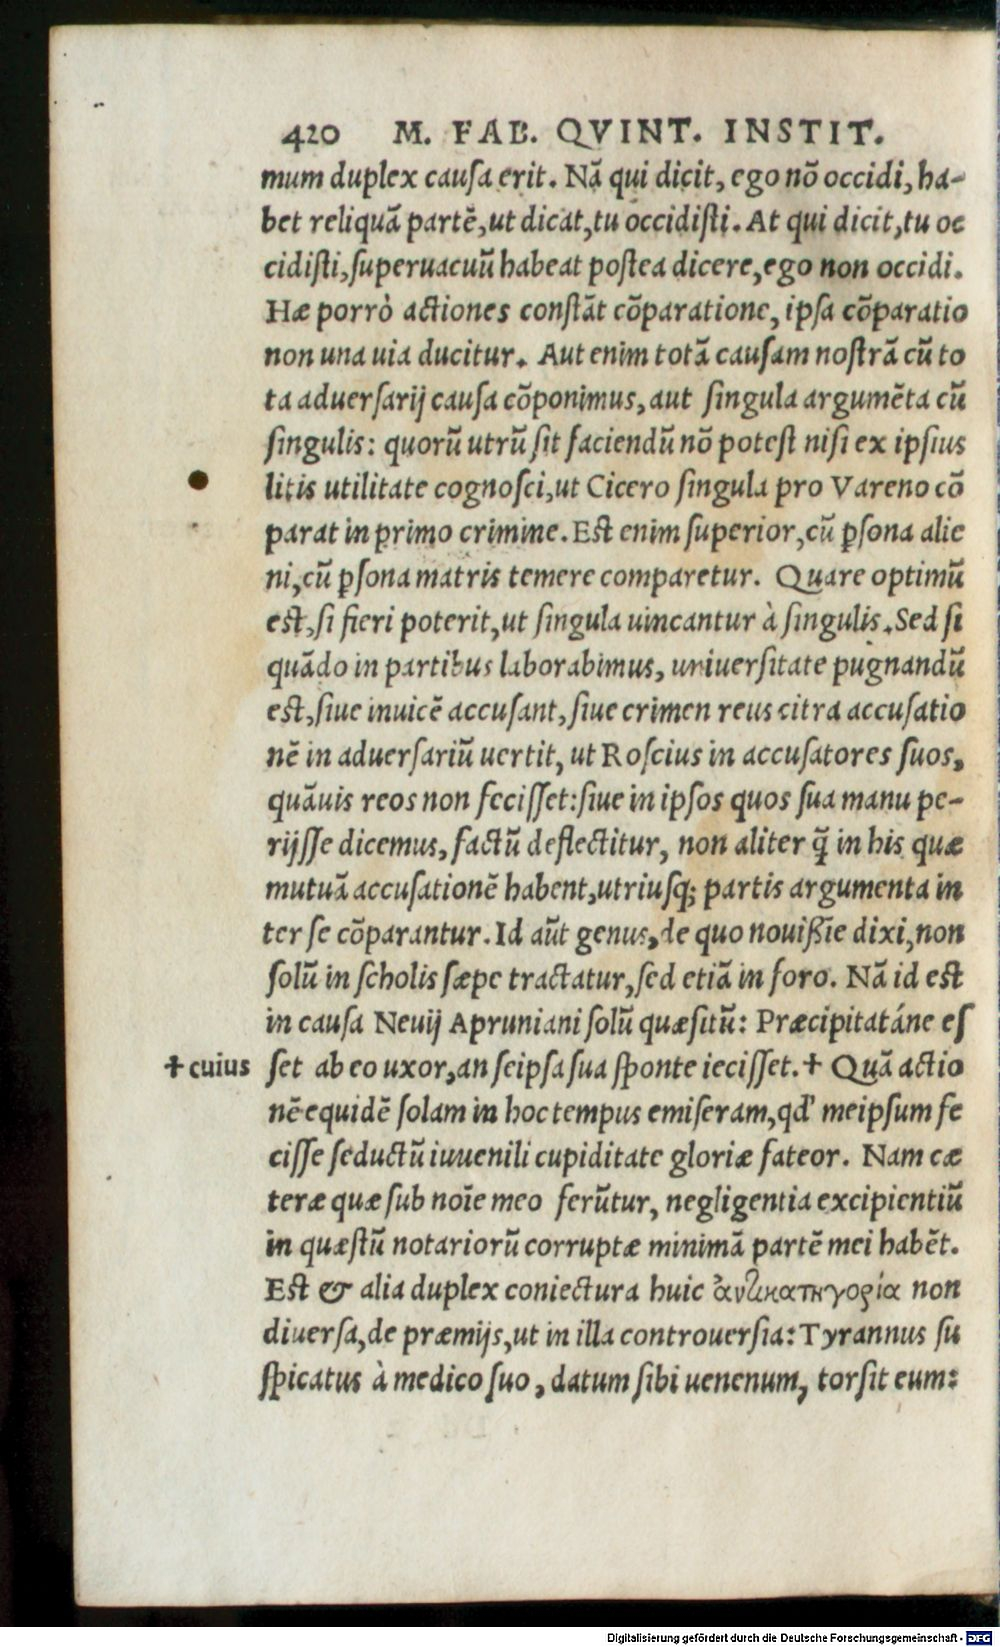 420 M. FAB. QVINT. INSTIT.
mum duplex cauſa erit. Nã qui dicit, ego nõ occidi, ha-
bet reliquã partẽ, ut dicat, tu occidiſti. At qui dicit, tu oc
cidiſti, ſuperuacuũ habeat poſtea dicere, ego non occidi.
Hæ porrò actiones conſtãt cõparatione, ipſa cõparatio
non una uia ducitur. Aut enim totã cauſam noſtrã cũ to
ta aduerſarij cauſa cõponimus, aut ſingula argumẽta cũ
ſingulis: quorũ utrũ ſit faciendũ nõ poteſt niſi ex ipſius
litis utilitate cognoſci, ut Cicero ſingula pro Vareno cõ
parat in primo crimine. Eſt enim ſuperior, cũ ꝑſona alie
ni, cũ ꝑſona matris temere comparetur. Quare optimũ
eſt, ſi fieri poterit, ut ſingula uincantur à ſingulis. Sed ſi
quãdo in partibus laborabimus, uniuerſitate pugnandũ
eſt, ſiue inuicẽ accuſant, ſiue crimen reus citra accuſatio
nẽ in aduerſariũ uertit, ut Roſcius in accuſatores ſuos,
quãuis reos non feciſſet: ſiue in ipſos quos ſua manu pe-
rijſſe dicemus, factũ deflectitur, non aliter q̃ in his quæ
mutuã accuſationẽ habent, utriuſq; partis argumenta in
ter ſe cõparantur. Id aũt genus, de quo nouißĩe dixi, non
ſolũ in ſcholis ſæpe tractatur, ſed etiã in foro. Nã id eſt
in cauſa Neuij Apruniani ſolũ quæſitũ: Præcipitatáne eſ
✝cuius ſet ab eo uxor, an ſeipſa ſua ſponte ieciſſet.✝ Quã actio
nẽ equidẽ ſolam in hoc tempus emiſeram, qd' meipſum fe
ciſſe ſeductũ iuuenili cupiditate gloriæ fateor. Nam cæ
teræ quæ ſub noĩe meo ferũtur, negligentia excipientiũ
in quæſtũ notariorũ corruptæ minimã partẽ mei habẽt.
Eſt & alia duplex coniectura huic ἀντικατηγορία non
diuerſa, de præmijs, ut in illa controuerſia: Tyrannus ſu
ſpicatus à medico ſuo, datum ſibi uenenum, torſit eum:
Digitalisierung gefördert durch die Deutsche Forschungsgemeinschaft - DFG